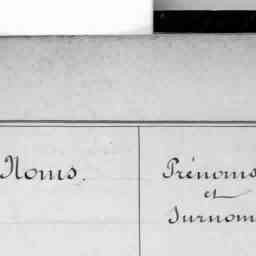 Noms.
Prénoms
et
Surnom